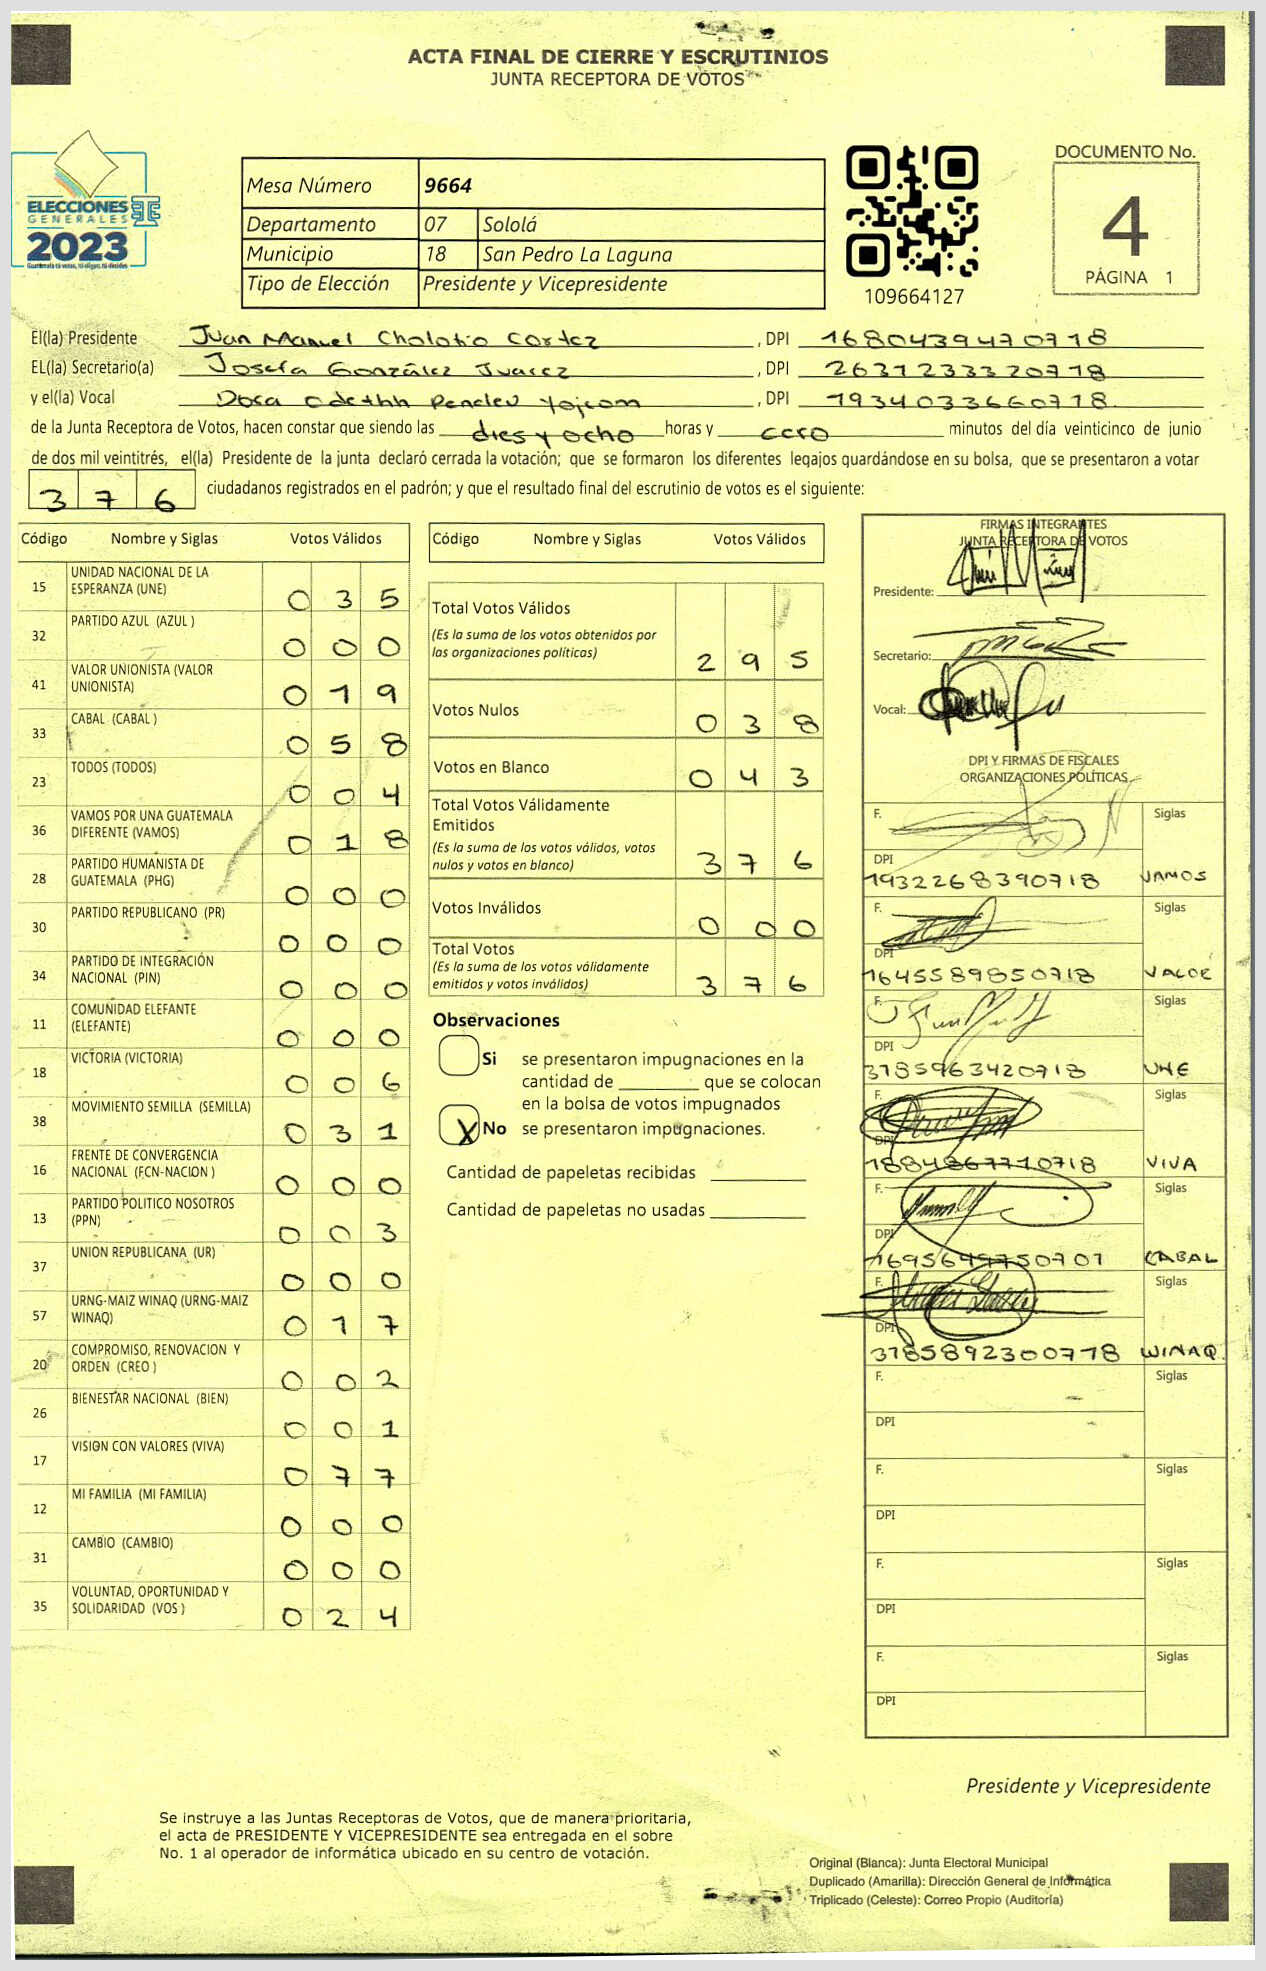 ACTA FINAL DE CIERRE Y ESCRUTINIOS
JUNTA RECEPTORA DE VOTOS
ELECCIONES
GENERALES
2023
Guatemala tú votas, tú eliges, tú decides
Mesa Número 9664
Departamento 07 Sololá
Municipio 18 San Pedro La Laguna
Tipo de Elección Presidente y Vicepresidente
109664127
DOCUMENTO No.
4
PÁGINA 1
El(la) Presidente Juan Manuel Cholotio Cortez , DPI 1680439470718
EL(la) Secretario(a) Josefa González Juarez , DPI 2631233320718
y el(la) Vocal Dora Odethh Peneleu Yojcom , DPI 1934033660718
de la Junta Receptora de Votos, hacen constar que siendo las dies y ocho horas y cero minutos del día veinticinco de junio
de dos mil veintitrés, el(la) Presidente de la junta declaró cerrada la votación; que se formaron los diferentes legajos guardándose en su bolsa, que se presentaron a votar
376 ciudadanos registrados en el padrón; y que el resultado final del escrutinio de votos es el siguiente:
Código Nombre y Siglas Votos Válidos
15 UNIDAD NACIONAL DE LA ESPERANZA (UNE) 035
32 PARTIDO AZUL (AZUL ) 000
41 VALOR UNIONISTA (VALOR UNIONISTA) 019
33 CABAL (CABAL ) 058
23 TODOS (TODOS) 004
36 VAMOS POR UNA GUATEMALA DIFERENTE (VAMOS) 018
28 PARTIDO HUMANISTA DE GUATEMALA (PHG) 000
30 PARTIDO REPUBLICANO (PR) 000
34 PARTIDO DE INTEGRACIÓN NACIONAL (PIN) 000
11 COMUNIDAD ELEFANTE (ELEFANTE) 000
18 VICTORIA (VICTORIA) 006
38 MOVIMIENTO SEMILLA (SEMILLA) 031
16 FRENTE DE CONVERGENCIA NACIONAL (FCN-NACION ) 000
13 PARTIDO POLITICO NOSOTROS (PPN) 003
37 UNION REPUBLICANA (UR) 000
57 URNG-MAIZ WINAQ (URNG-MAIZ WINAQ) 017
20 COMPROMISO, RENOVACION Y ORDEN (CREO ) 002
26 BIENESTAR NACIONAL (BIEN) 001
17 VISION CON VALORES (VIVA) 077
12 MI FAMILIA (MI FAMILIA) 000
31 CAMBIO (CAMBIO) 000
35 VOLUNTAD, OPORTUNIDAD Y SOLIDARIDAD (VOS ) 024
Código Nombre y Siglas Votos Válidos
Total Votos Válidos
(Es la suma de los votos obtenidos por
las organizaciones políticas) 295
Votos Nulos 038
Votos en Blanco 043
Total Votos Válidamente
Emitidos
(Es la suma de los votos válidos, votos
nulos y votos en blanco) 376
Votos Inválidos 000
Total Votos
(Es la suma de los votos válidamente
emitidos y votos inválidos) 376
Observaciones
Si se presentaron impugnaciones en la
cantidad de ________ que se colocan
en la bolsa de votos impugnados
X No se presentaron impugnaciones.
Cantidad de papeletas recibidas
Cantidad de papeletas no usadas
FIRMAS INTEGRANTES
JUNTA RECEPTORA DE VOTOS
Presidente:
Secretario:
Vocal:
DPI Y FIRMAS DE FISCALES
ORGANIZACIONES POLÍTICAS
F. Siglas
DPI
1932268390718 VAMOS
F. Siglas
DPI
1645589850718 VALOR
F. Siglas
DPI
3785963420718 UNE
F. Siglas
DPI
1884867710718 VIVA
F. Siglas
DPI
1695649750701 CABAL
F. Siglas
DPI
3785892300778 WINAQ.
F. Siglas
DPI
F. Siglas
DPI
F. Siglas
DPI
F. Siglas
DPI
Presidente y Vicepresidente
Se instruye a las Juntas Receptoras de Votos, que de manera prioritaria,
el acta de PRESIDENTE Y VICEPRESIDENTE sea entregada en el sobre
No. 1 al operador de informática ubicado en su centro de votación.
Original (Blanca): Junta Electoral Municipal
Duplicado (Amarilla): Dirección General de Informática
Triplicado (Celeste): Correo Propio (Auditoría)